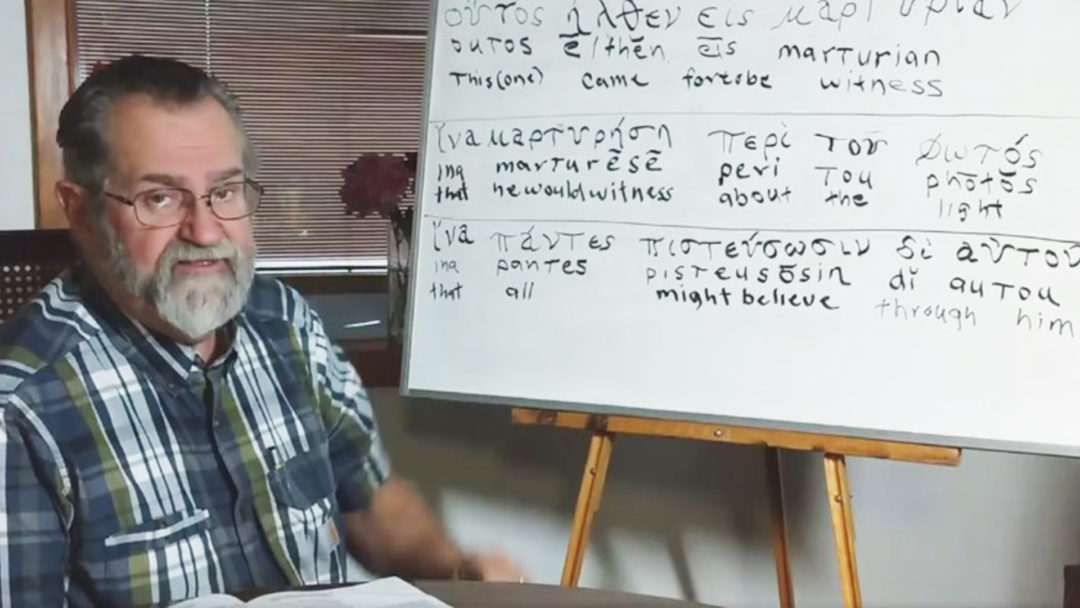 οὗτος ἦλθεν εἰς μαρτυρίαν
outos ēlthĕn ēis marturian
This(one) came fortobe witness
ἵνα μαρτυρήσῃ περὶ τοῦ φωτός
ina marturēsē peri tou phōtŏs
that hewouldwitness about the light
ἵνα πάντες πιστεύσωσιν δι αὐτοῦ
ina pantes pisteusōsin di autou
that all might believe through him